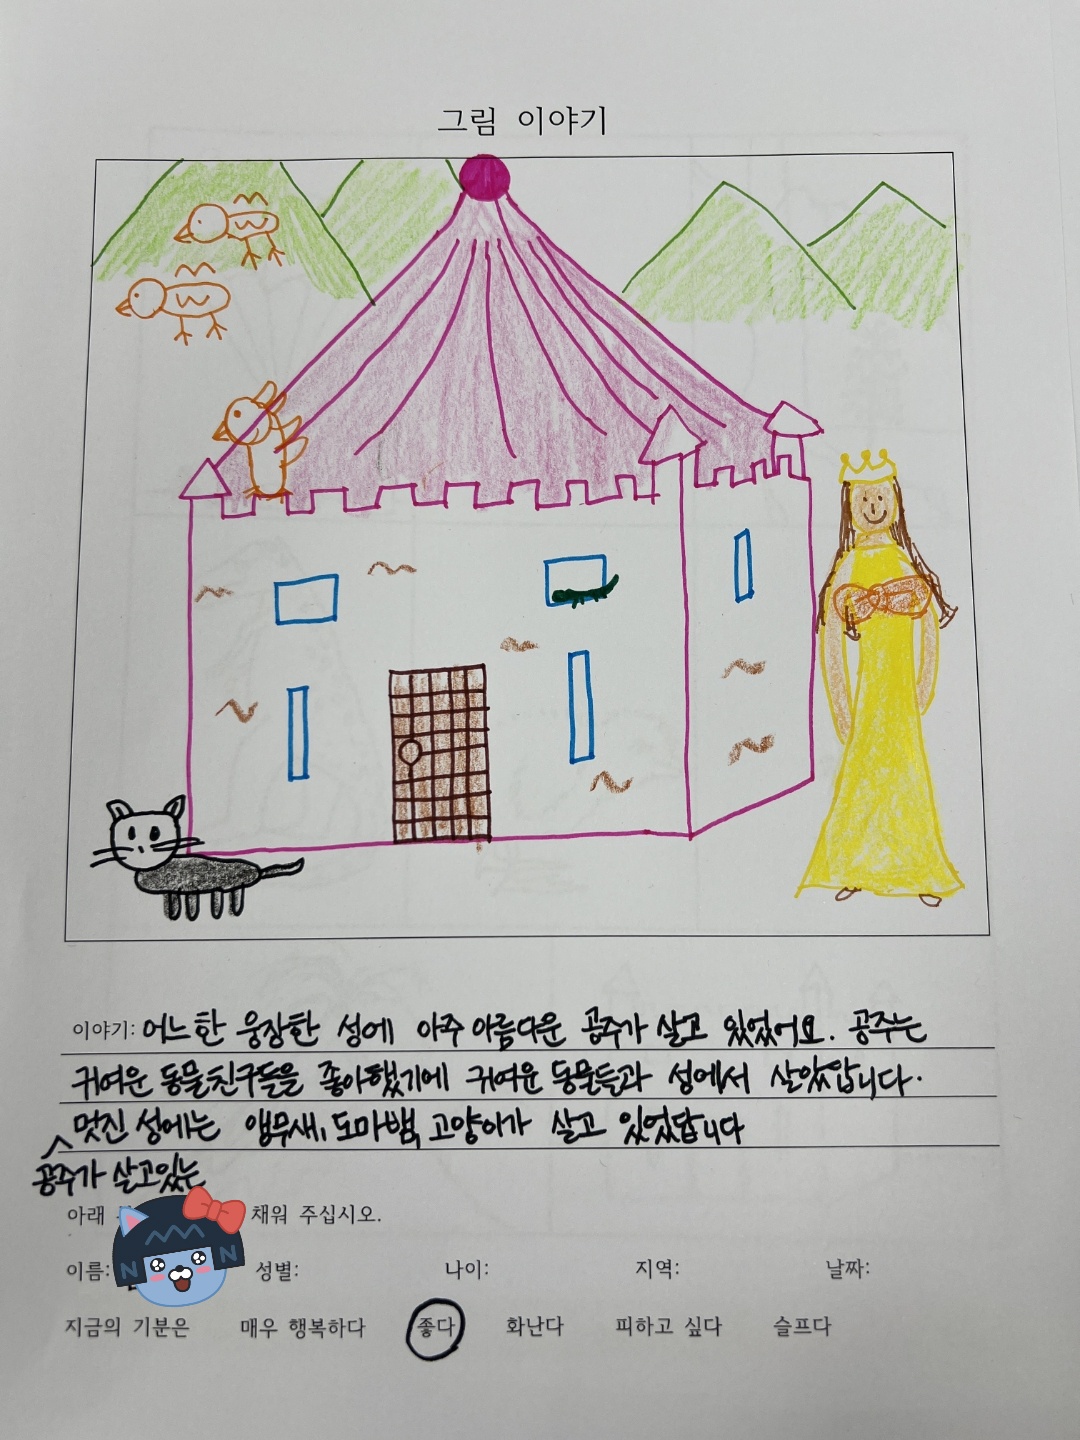 그림 이야기
이야기: 어느한 웅장한 성에 아주 아름다운 공주가 살고 있었어요. 공주는
귀여운 동물친구들을 좋아했기에 귀여운 동물들과 성에서 살았답니다.
멋진 성에는 앵무새, 도마뱀, 고양이가 살고 있었답니다
공주가 살고있는
아래 채워 주십시오.
이름: 성별: 나이: 지역: 날짜:
지금의 기분은 매우 행복하다 좋다 화난다 피하고 싶다 슬프다